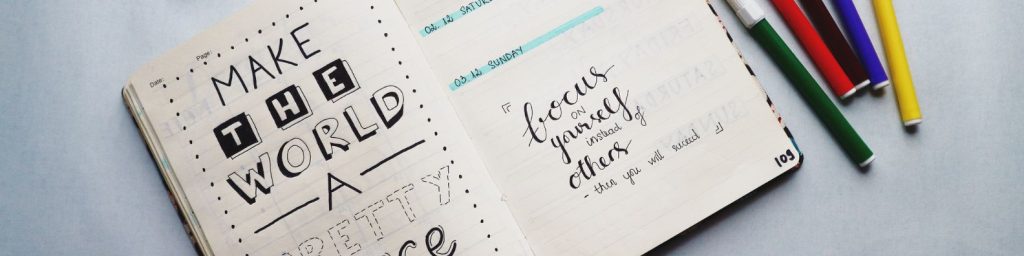 Date: Page:
MAKE
THE
WORLD
A
PRETTY
02.12 SATURDA
03.12 SUNDAY
「focus
ON
yourself
instead of
others
- then you will succeed」
109